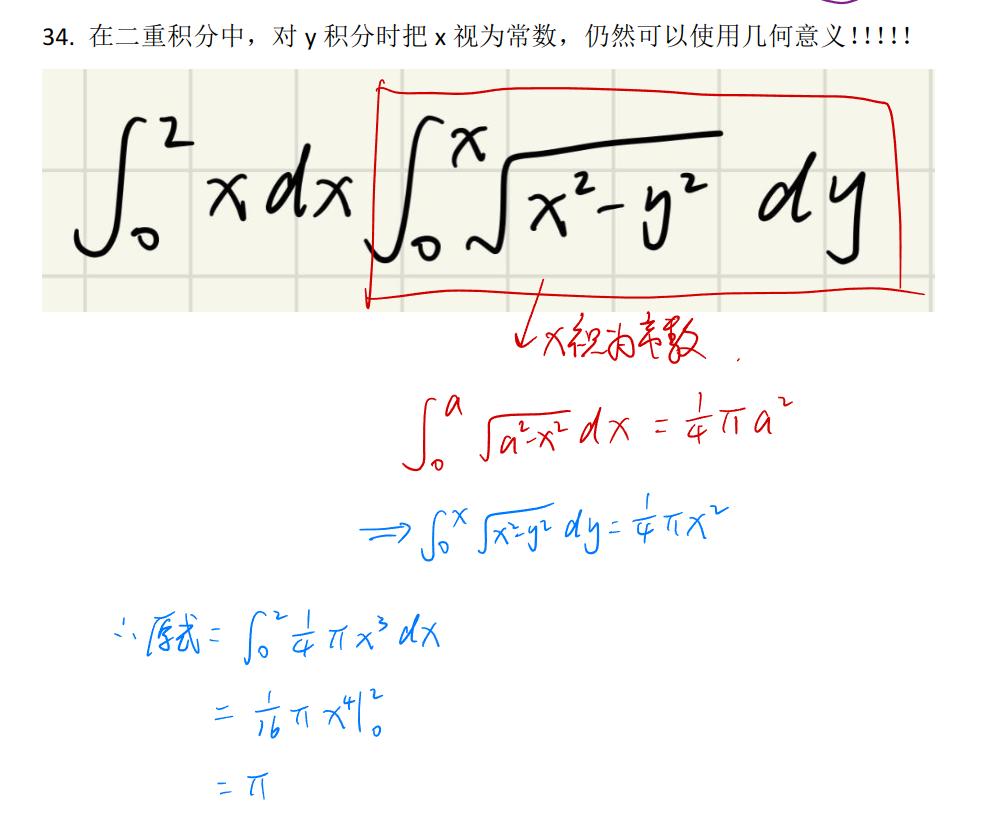 34. 在二重积分中，对 y 积分时把 x 视为常数，仍然可以使用几何意义！！！！！
∫₀² x dx ∫₀ˣ √(x²-y²) dy
x积为常数.
∫₀ᵃ √(a²-x²) dx = 1/4 π a²
⇒ ∫₀ˣ √(x²-y²) dy = 1/4 π x²
∴ 原式 = ∫₀² 1/4 π x³ dx
= 1/16 π x⁴|₀²
= π